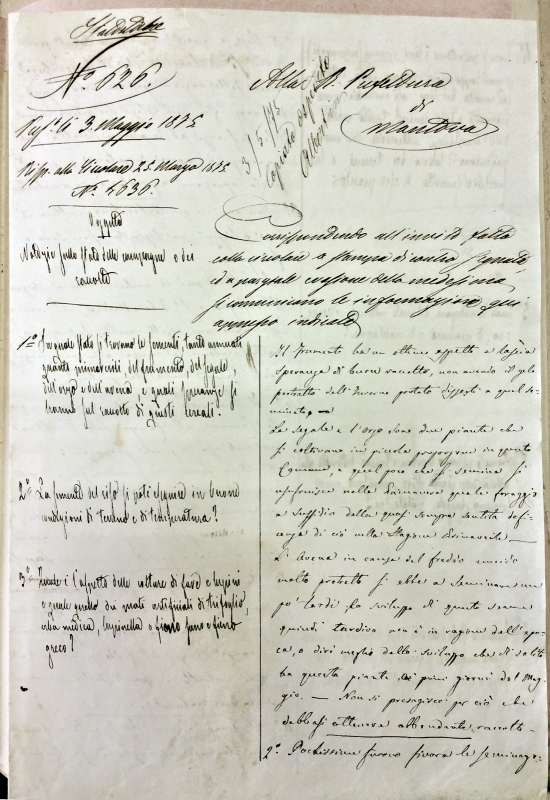 N.° 626.
Alla R. Prefettura
di
Mantova
3/5/75
Li 3. Maggio 1875
Risp. alla Circolare 25. Marzo 1875
N.° 4636.
Oggetto
Notizie sullo stato delle campagne e dei
raccolti
Corrispondendo all'invito fatto
colla circolare a stampa di contro segnata
ed a pargiale evasione della medesima,
si comunicano le informazioni qui
appresso indicate
1.° In quale stato si trovano le sementi, tanto annuali
quanto primaverili, del frumento, del segale,
dell'orzo e dell'avena e quali speranze si
hanno sul raccolto di questi cereali?
2.° La semente del riso si poté eseguire in buone
condizioni di terreno e di temperatura?
3.° Quale è l'aspetto delle colture di fave e lupini
e quale quello dei prati artificiali di trifoglio
erba medica, lupinella o fieno sano e fieno
greco?
Il frumento ha un ottimo aspetto e lascia
speranza di buon raccolto, non avendo il gelo
protratto dell'Inverno portato dissesti a quel se-
minato.
La segale e l'orzo sono due piante che
si coltivano in piccola proporzione in questo
Comune, e quel poco che si semina si
usufruisce nella Primavera quale foraggio
a sussidio della quasi sempre sentita defi-
cenza di ciò nella stagione Primaverile —
L'Avena in causa del freddo
molto protratto si ebbe a seminare un
po' tardi. Lo sviluppo di questo seme
quindi tardivo non è in ragione dell'epo-
ca, o dirò meglio dello sviluppo che di solito
ha questa pianta nei primi giorni del Mag-
gio. — Non si presagisce per ciò che
debbasi ottenere abbondante raccolto.
2.° Pochissime furono finora le seminagi-